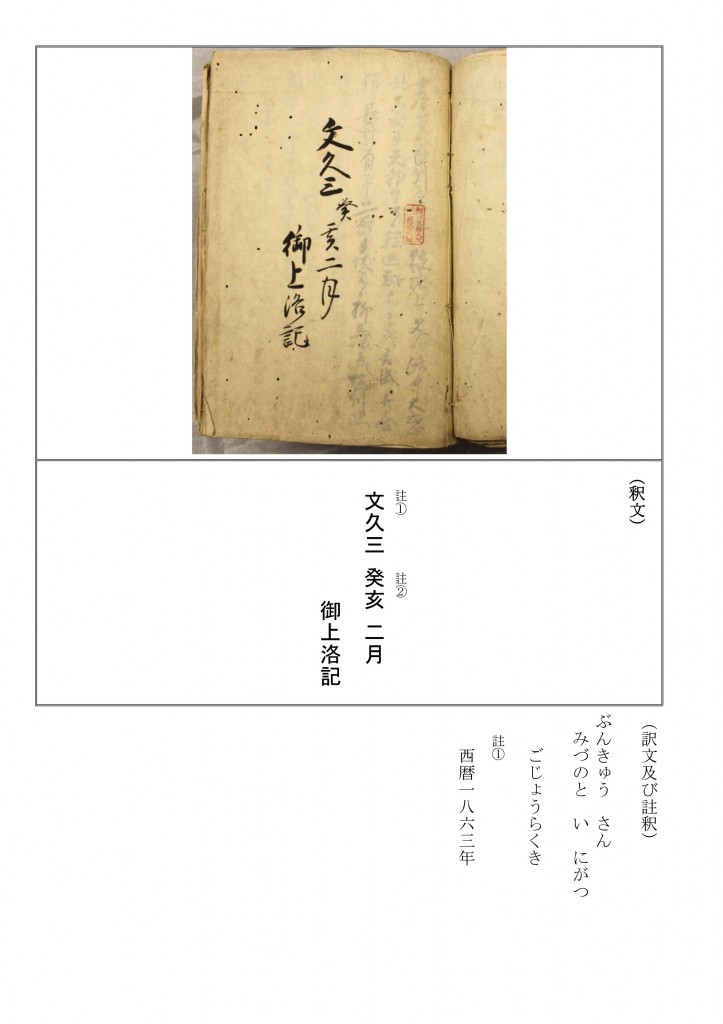 文久三癸亥二月
御上洛記
（釈文）
註① 註②
文久三 癸亥 二月
御上洛記
（訳文及び註釈）
ぶんきゅう さん
みづのと い にがつ
ごじょうらくき
註①
西暦一八六三年